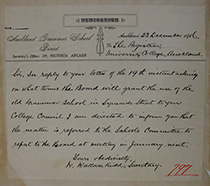 Auckland Grammar School
Board
Secretary's Office: VICTORIA ARCADE
Auckland 23 December 1916
To The Registrar,
University College, Auckland.
Sir, In reply to your letter of the 19th instant asking
on what terms the Board will grant the use of the
old Grammar School in Symonds Street to your
College Council, I am directed to inform you that
the matter is referred to the Schools Committee to
report to the Board at meeting in January next.
Yours obediently,
Secretary.
797